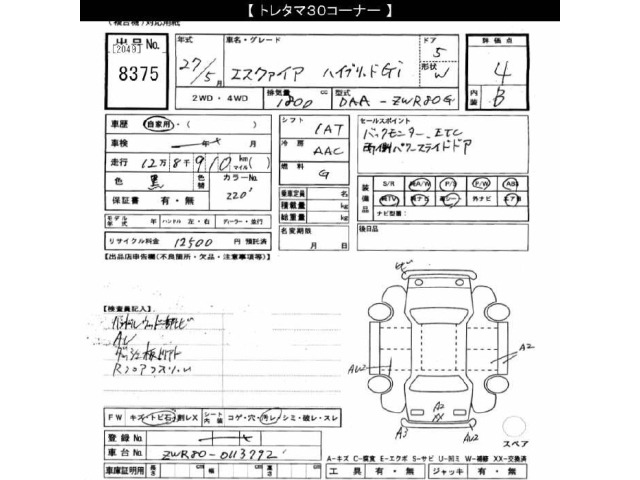 【 トレタマ30コーナー 】
(複合機)対応用紙
出品No. [2049] 8375
年式 27/5月
車名・グレード エスクァイア ハイブリッドGi
ドア 5
形状 W
2WD・4WD
排気量 1800 cc
型式 DAA-ZWR80G
評価点 4
内装 B
車歴 自家用・( )
車検 年 月
走行 12万8千910 km(マイル)
色 黒 色替 カラーNo. 220
保証書 有・無
モデル年式 年 ハンドル 左・右 ディーラー・並行
リサイクル料金 12500 円 預託済
シフト IAT
冷房 AAC
燃料 G
乗車定員 名
積載量 kg
総重量 kg
名変期限 月 日
セールスポイント
バックモニター ETC
両側パワースライドドア
装備品 S/R 純A/W P/S P/W ABS
純TV 純ナビ 革シート 外ナビ エアB
ナビ型番:
後日品
【出品店申告欄(不良箇所・欠品・注意事項等)】
【検査員記入】
AU
FW キズ・トビ石・割レX シート内装 コゲ・穴・汚レ・シミ・破レ・スレ
登録No.
車台No. ZWR80-0113792
車庫証明用 長さ cm 幅 cm 高さ cm
AU2
A2
A2
XX
A3
AU2
スペア
A-キズ C-腐食 E-エクボ S-サビ U-凹ミ W-補修 XX-交換済
工具 有・無 ジャッキ 有・無